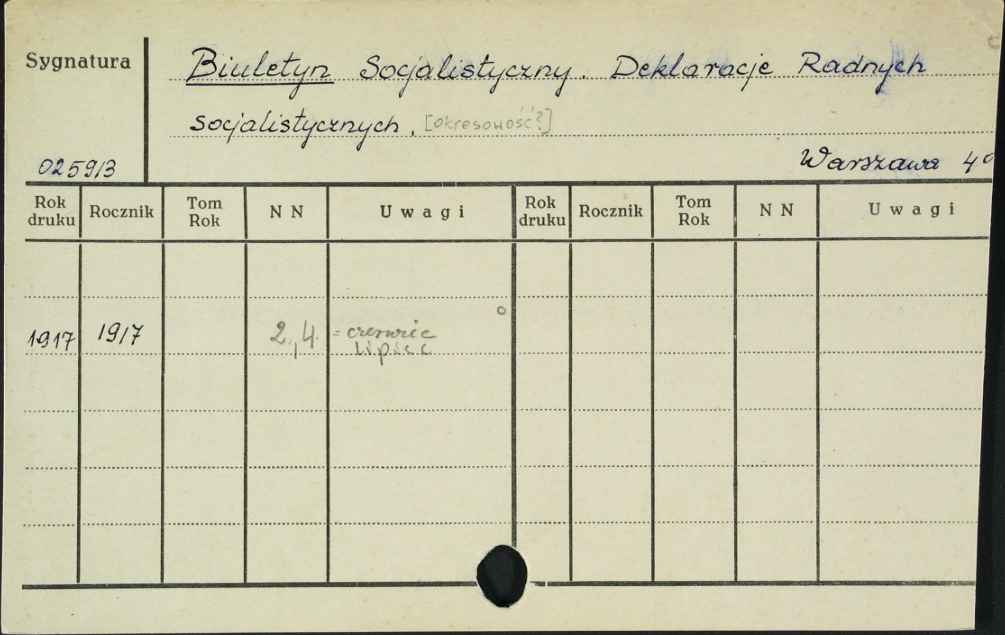 Sygnatura
Biuletyn Socjalistyczny. Deklaracje Radnych
socjalistycznych. [okresowość?]
025913
Warszawa 4°
Rok druku Rocznik Tom Rok N N Uwagi Rok druku Rocznik Tom Rok N N Uwagi
1917 1917 2, 4 = czerwiec
lipiec